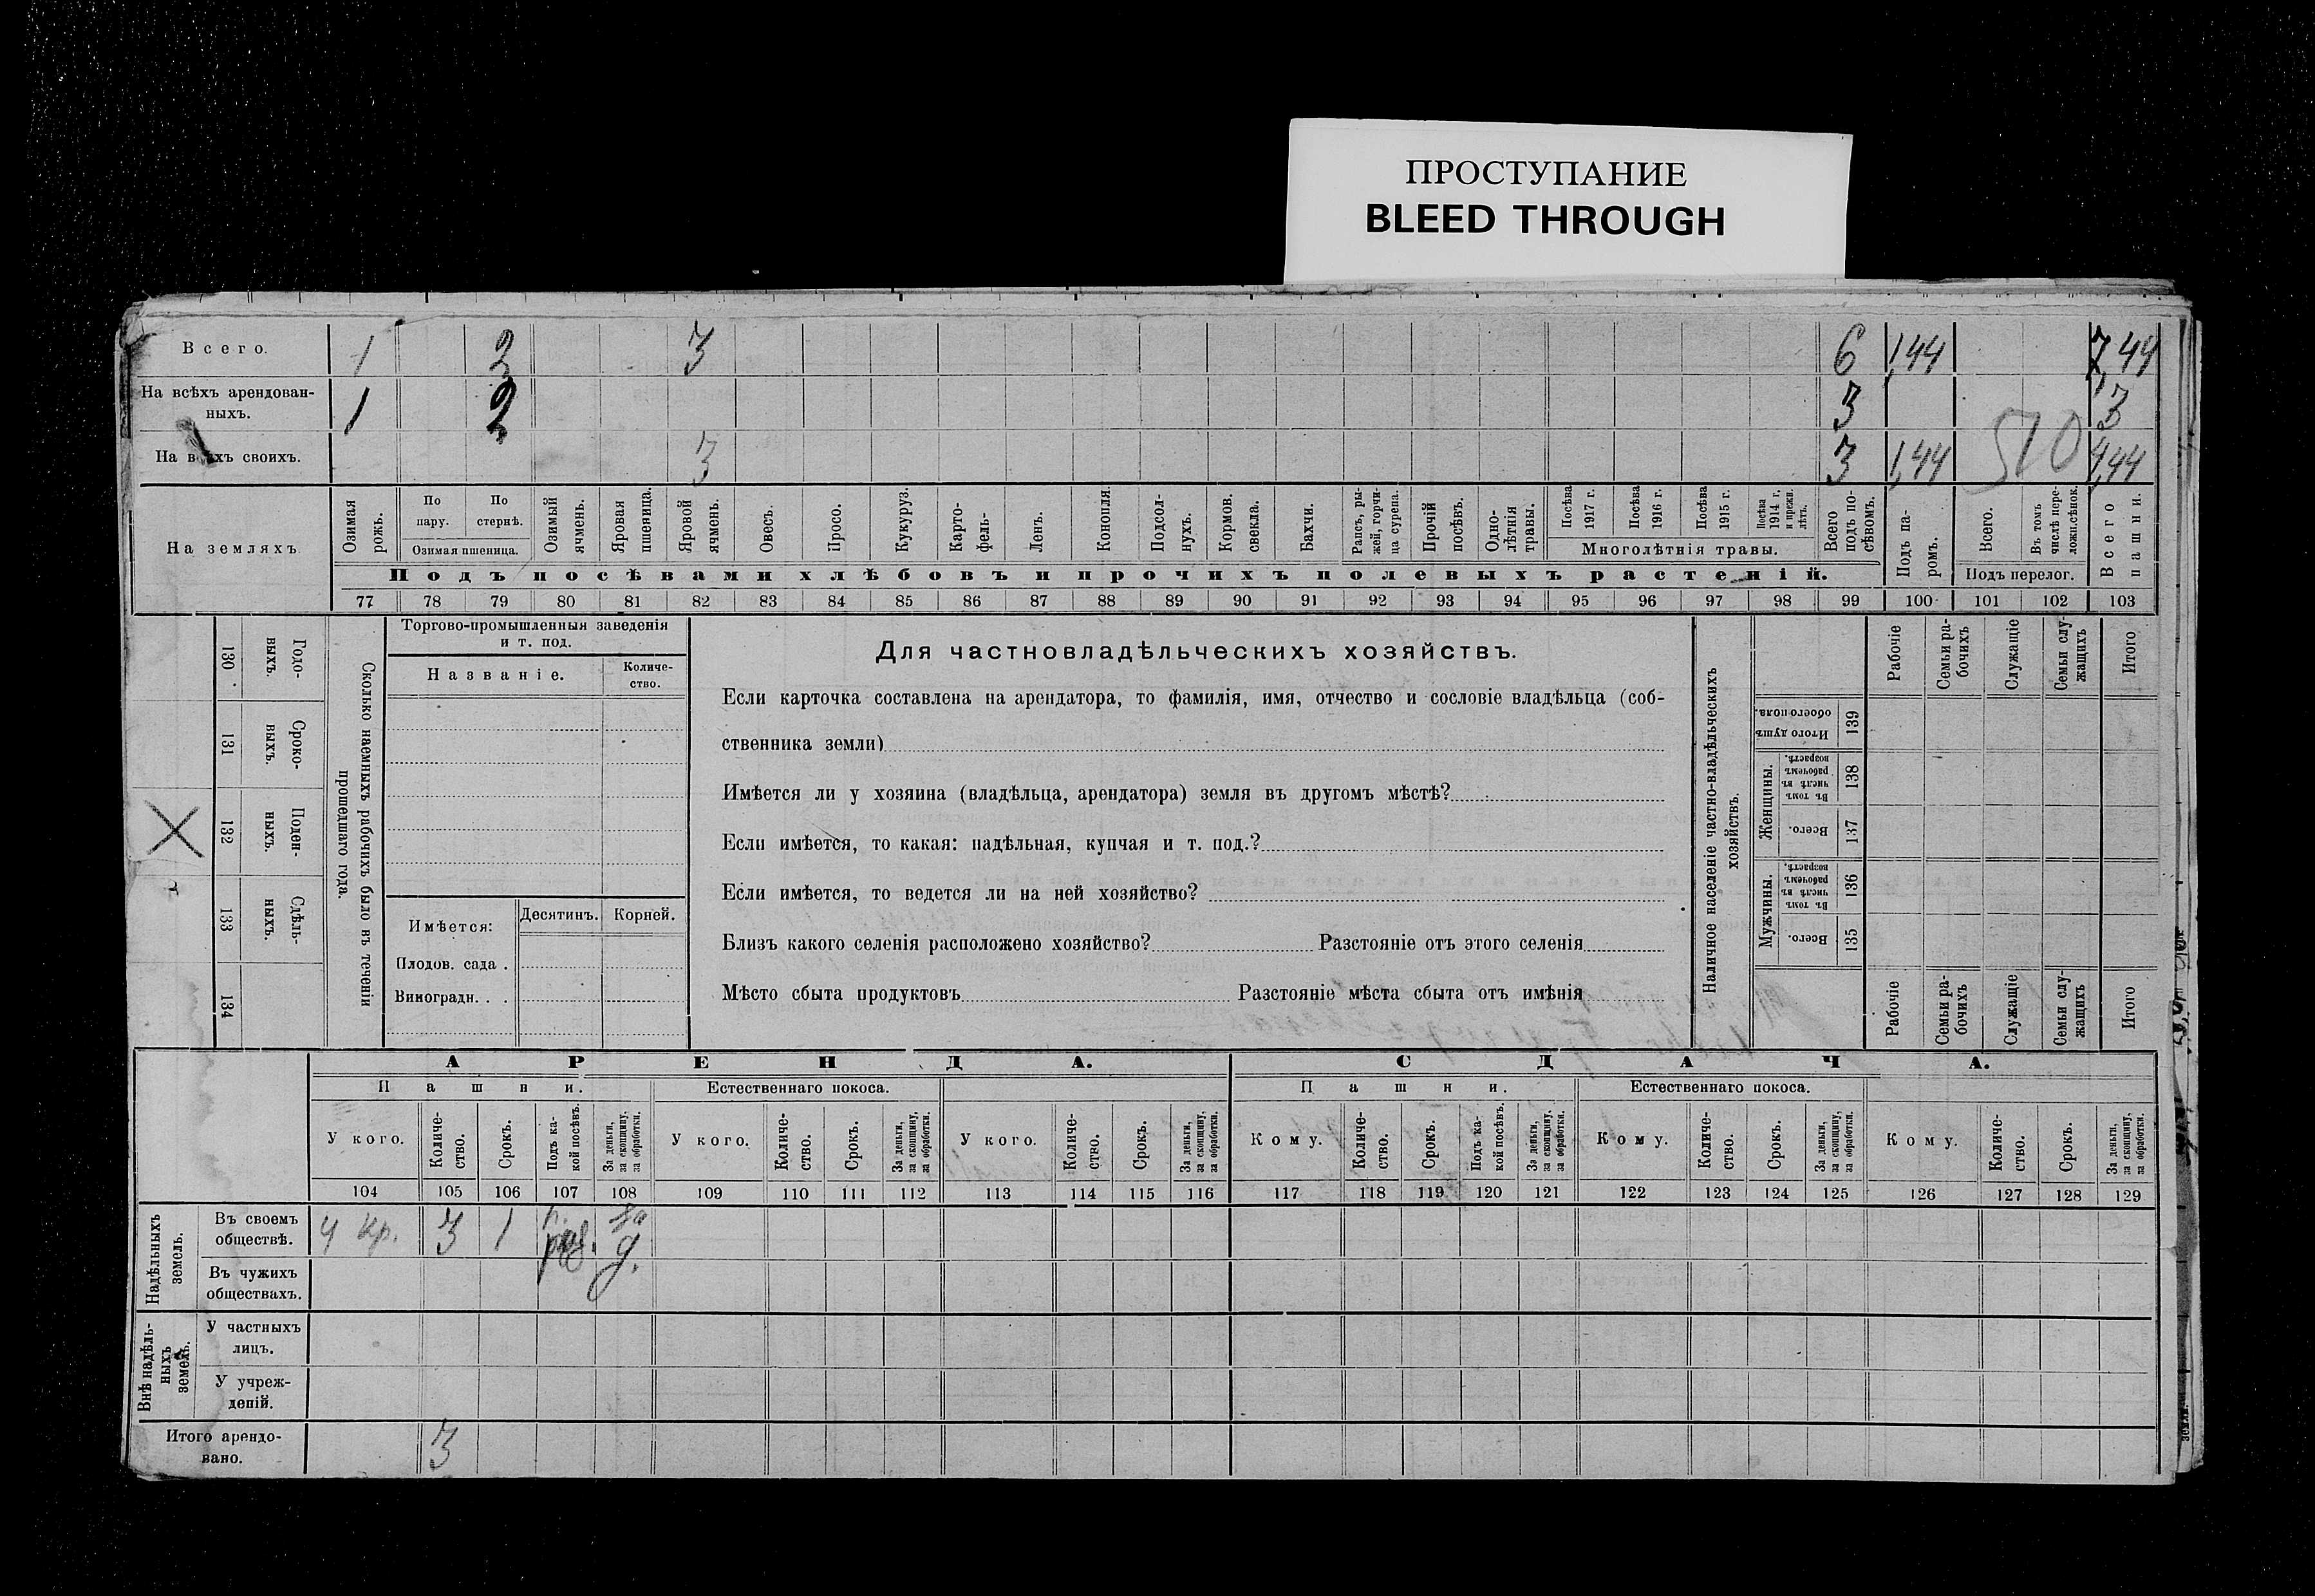 ПРОСТУПАНИЕ
BLEED THROUGH
Всего. 1 2 3 6 1,44 7,44
На всѣхъ арендован-
ныхъ. 1 2 3 3
На всѣхъ своихъ. 3 3 1,44 4,44
510
На земляхъ
Озимая рожь.
По пару.
По стернѣ.
Озимая пшеница.
Озимый ячмень.
Яровая пшеница.
Яровой ячмень.
Овесъ.
Просо.
Кукуруз.
Карто-
фель-
Ленъ.
Конопля.
Подсол-
нухъ.
Кормов.
свекла.
Бахчи.
Рапсъ, ры-
жей, горчи-
ца сурепа.
Прочій
посѣвъ.
Одно-
лѣтнія
травы.
Посѣва
1917 г.
Посѣва
1916 г.
Посѣва
1915 г.
Посѣва
1914 г.
и прежн.
лѣтъ.
Многолѣтнія травы.
Всего
подъ по-
сѣвомъ.
Подъ па-
ромъ.
Всего.
Въ томъ
числѣ пере-
лож.сѣнок.
Подъ перелог.
Всего
пашни.
Подъ посѣвами хлѣбовъ и прочихъ полевыхъ растеній.
77 78 79 80 81 82 83 84 85 86 87 88 89 90 91 92 93 94 95 96 97 98 99 100 101 102 103
Годо-
выхъ.
130
Сроко-
ныхъ.
131
Поден-
ныхъ.
132
Сдѣль-
ныхъ.
133
134
Сколько наемныхъ рабочихъ было въ теченіи
прошедшаго года.
Торгово-промышленныя заведенія
и т. под.
Названіе.
Количе-
ство.
Имѣется:
Десятинъ.
Корней.
Плодов. сада .
Виноградн. . .
Для частновладѣльческихъ хозяйствъ.
Если карточка составлена на арендатора, то фамилія, имя, отчество и сословіе владѣльца (соб-
ственника земли)
Имѣется ли у хозяина (владѣльца, арендатора) земля въ другомъ мѣстѣ?
Если имѣется, то какая: надѣльная, купчая и т. под.?
Если имѣется, то ведется ли на ней хозяйство?
Близъ какого селенія расположено хозяйство? Разстояніе отъ этого селенія
Мѣсто сбыта продуктовъ Разстояніе мѣста сбыта отъ имѣнія
Наличное населеніе частно-владѣльческихъ
хозяйствъ.
Рабочіе
Семьи ра-
бочихъ
Служащіе
Семьи слу-
жащихъ
Итого
Итого душъ
обоего пола.
139
Женщины.
Въ томъ
числѣ въ
рабочемъ
возрастѣ.
138
Всего.
137
Мужчины.
Въ томъ
числѣ въ
рабочемъ
возрастѣ.
136
Всего.
135
Рабочіе
Семьи ра-
бочихъ
Служащіе
Семьи слу-
жащихъ
Итого
АРЕНДА.
СДАЧА.
Пашни.
Естественнаго покоса.
Пашни.
Естественнаго покоса.
У кого.
Количе-
ство.
Срокъ.
Подъ ка-
кой посѣвъ.
За деньги,
за скопщину,
за обработки.
У кого.
Количе-
ство.
Срокъ.
За деньги,
за скопщину,
за обработки.
У кого.
Количе-
ство.
Срокъ.
За деньги,
за скопщину,
за обработки.
Кому.
Количе-
ство.
Срокъ.
Подъ ка-
кой посѣвъ.
За деньги,
за скопщину,
за обработки.
Кому.
Количе-
ство.
Срокъ.
За деньги,
за скопщину,
за обработки.
Кому.
Количе-
ство.
Срокъ.
За деньги,
за скопщину,
за обработки.
104 105 106 107 108 109 110 111 112 113 114 115 116 117 118 119 120 121 122 123 124 125 126 127 128 129
Надѣльныхъ
земель.
Въ своемъ
обществѣ.
у кр. 3 1 за д.
Въ чужихъ
обществахъ.
Внѣ надѣль-
ныхъ
земель.
У частныхъ
лицъ.
У учреж-
деній.
Итого арендо-
вано. 3